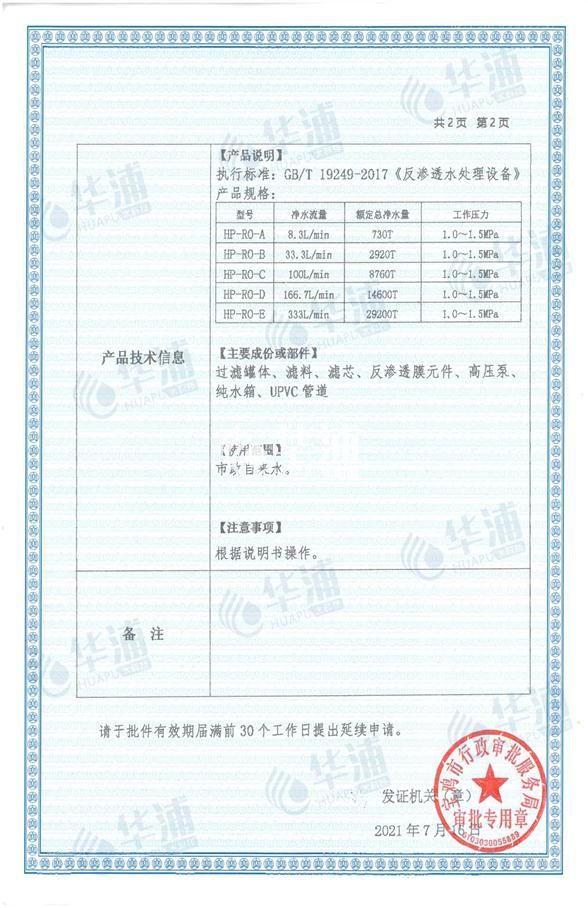 共2页 第2页
产品技术信息
【产品说明】
执行标准：GB/T 19249-2017《反渗透水处理设备》
产品规格：
型号 净水流量 额定总净水量 工作压力
HP-RO-A 8.3L/min 730T 1.0～1.5MPa
HP-RO-B 33.3L/min 2920T 1.0～1.5MPa
HP-RO-C 100L/min 8760T 1.0～1.5MPa
HP-RO-D 166.7L/min 14600T 1.0～1.5MPa
HP-RO-E 333L/min 29200T 1.0～1.5MPa
【主要成份或部件】
过滤罐体、滤料、滤芯、反渗透膜元件、高压泵、
纯水箱、UPVC管道
【使用范围】
市政自来水。
【注意事项】
根据说明书操作。
备 注
请于批件有效期届满前30个工作日提出延续申请。
发证机关（章）
2021年7月16日
宝鸡市行政审批服务局
审批专用章
6103030055889
华浦
HUAPU